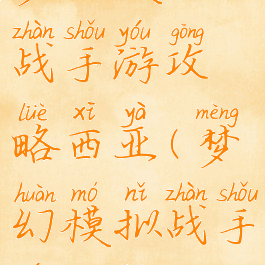 zhàn shǒu yóu gōng
战手游攻
lüè xī yà mèng
略西亚(梦
huàn mó nǐ zhàn shǒu
幻模拟战手